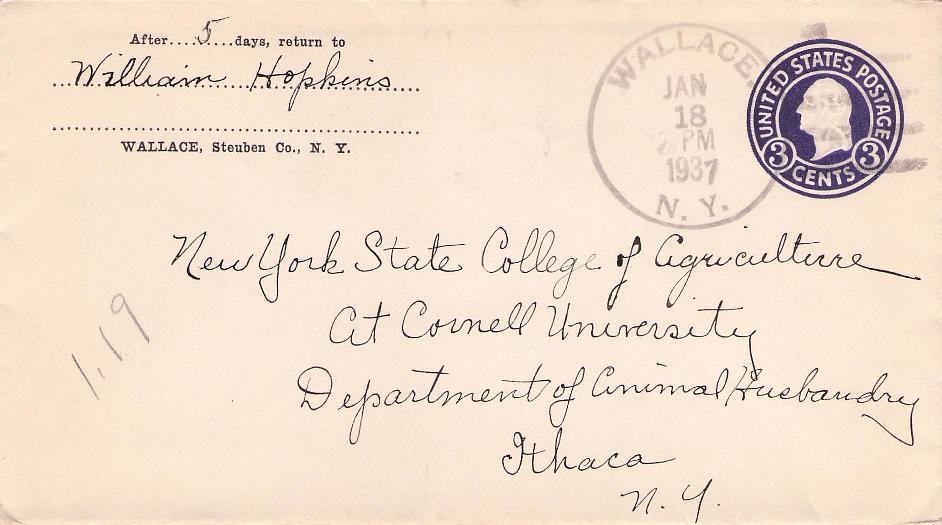 After....5....days, return to
William Hopkins
WALLACE, Steuben Co., N. Y.
WALLACE,
JAN
18
PM
1937
N. Y.
UNITED STATES POSTAGE
3 CENTS 3
New York State College of Agriculture
At Cornell University
Department of Animal Husbandry
Ithaca
N. Y.
1.19